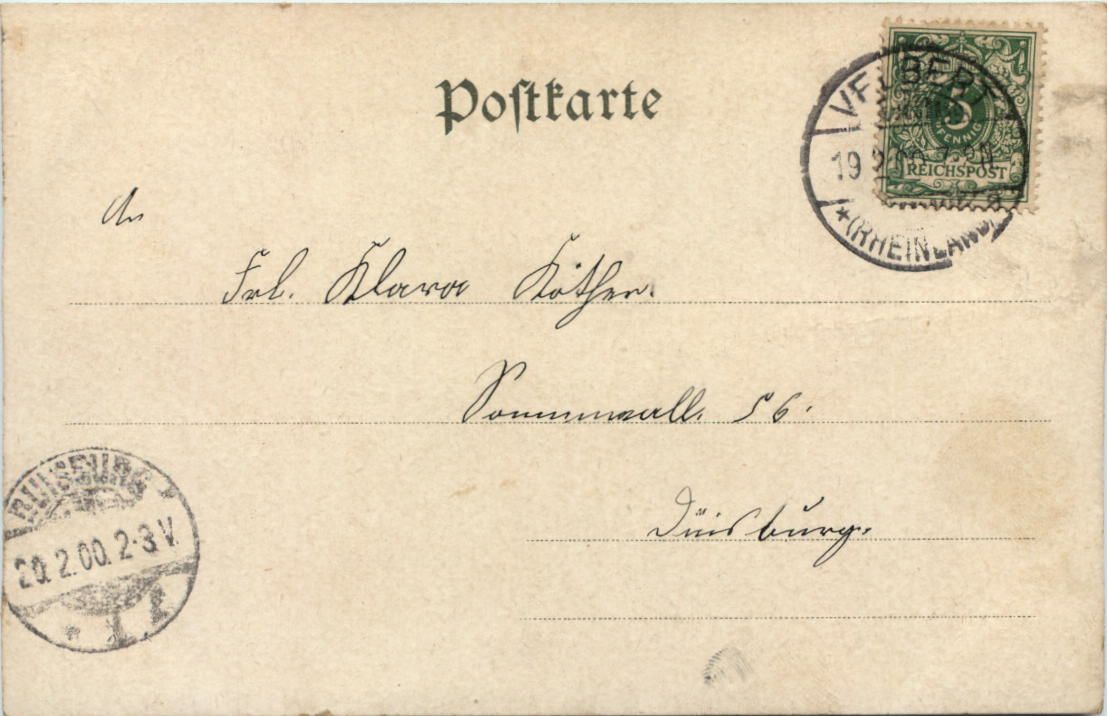 Postkarte
VELBERT
19 2 00 7-8 N.
* (RHEINLAND)
5
PFENNIG
REICHSPOST
An
Frl. Klara Köther.
Sonnenwall. 56.
Duisburg.
DUISBURG
20.2.00. 2-3 V.
* 1